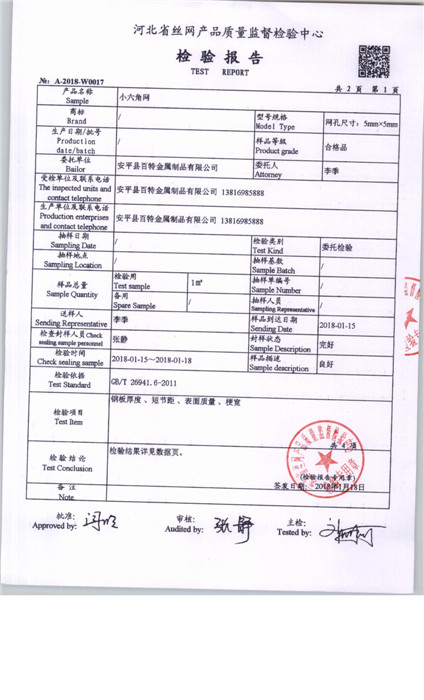 河北省丝网产品质量监督检验中心
检验报告
TEST REPORT
№: A-2018-W0017
共 2 页 第 1 页
产品名称 Sample
小六角网
商标 Brand
/
型号规格 Model Type
网孔尺寸: 5mm×5mm
生产日期/批号 Production date/batch
/
样品等级 Product grade
合格品
委托单位 Bailor
安平县百特金属制品有限公司
委托人 Attorney
李季
受检单位及联系电话 The inspected units and contact telephone
安平县百特金属制品有限公司 13816985888
生产单位及联系电话 Production enterprises and contact telephone
安平县百特金属制品有限公司 13816985888
抽样日期 Sampling Date
/
检验类别 Test Kind
委托检验
抽样地点 Sampling Location
/
抽样基数 Sample Batch
/
样品总量 Sample Quantity
检验用 Test sample
1㎡
抽样单编号 Sample Number
/
备用 Spare Sample
/
抽样人员 Sampling Representative
/
送样人 Sending Representative
李季
样品到达日期 Sending Date
2018-01-15
检查封样人员Check sealing sample personnel
张静
封样状态 Sample Description
完好
检验时间 Check sealing sample
2018-01-15～2018-01-18
样品描述 Sample description
良好
检验依据 Test Standard
GB/T 26941.6-2011
检验项目 Test Item
钢板厚度、短节距、表面质量、梗宽
共 4 项
检验结论 Test Conclusion
检验结果详见数据页。
(检验报告专用章)
签发日期: 2018年1月18日
备注 Note
批准: Approved by:
审核: Audited by: 张静
主检: Tested by: